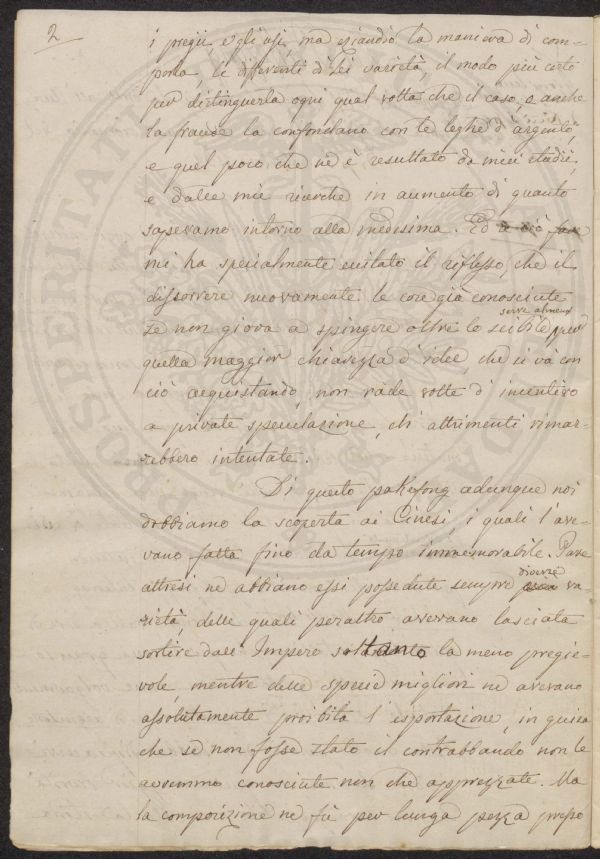 2
i pregii, e gli usi, ma eziandio la maniera di com-
porla, le differenti di lei varietà, il modo più certo
per distinguerla ogni qual volta che il caso, o anche
la fraude la confondano con le leghe d'argento,
e quel poco che ne è resultato da miei studii,
e dalle mie ricerche in aumento di quanto
sapevamo intorno alla medesima. Ed a ciò fare
mi ha specialmente eccitato il riflesso, che il
discorrere nuovamente le cose già conosciute
serve almeno
se non giova a spingere oltre lo scibile, per
quella maggior chiarezza d'idee, che si và con
ciò acquistando, non rade volte d'incentivo
a private speculazione, ch'altrimenti rimar-
rebbero intentate.
Di questo pakfong adunque noi
dobbiamo la scoperta ai Cinesi, i quali l'ave-
vano fatta fino da tempo immemorabile. Pare
diverse
altresi ne abbiano essi possedute sempre va-
rietà, delle quali peraltro avevano lasciata
sortire dall'Impero soltanto la meno pregie-
vole, mentre delle specie migliori ne avevano
assolutamente proibita l'esportazione, in guisa
che se non fosse stato il contrabbando non le
avremmo conosciute non che apprezzate. Ma
la composizione ne fù per lunga pezza prepo
PROSPERITATI